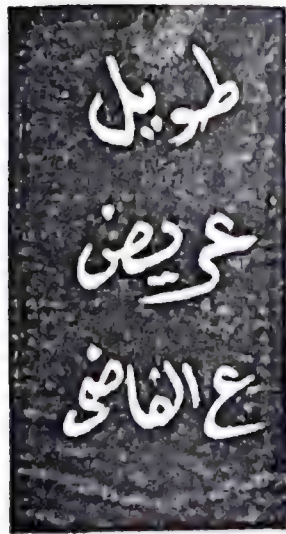 طويل
عريض
ع الفاضى